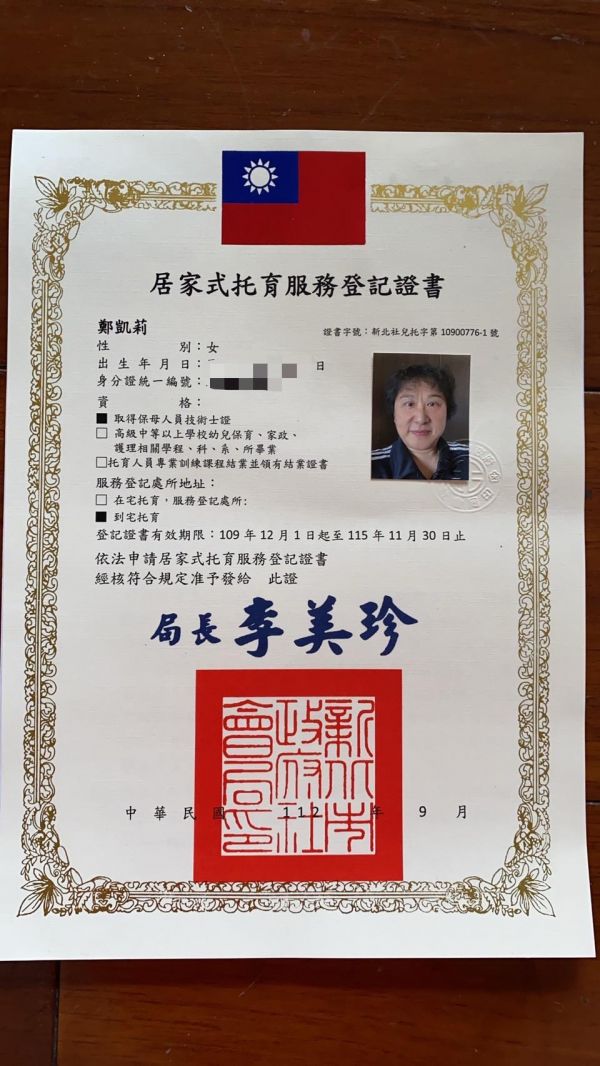 居家式托育服務登記證書
鄭凱莉
證書字號：新北社兒托字第 10900776-1 號
性別：女
出生年月日： 日
身分證統一編號：
資格：
■ 取得保母人員技術士證
□ 高級中等以上學校幼兒保育、家政、
護理相關學程、科、系、所畢業
□托育人員專業訓練課程結業並領有結業證書
服務登記處所地址：
□ 在宅托育，服務登記處所:
■ 到宅托育
登記證書有效期限：109 年 12 月 1 日起至 115 年 11 月 30 日止
依法申請居家式托育服務登記證書
經核符合規定准予發給 此證
局長 李美珍
新北市政府社會局印
中華民國 112 年 9 月